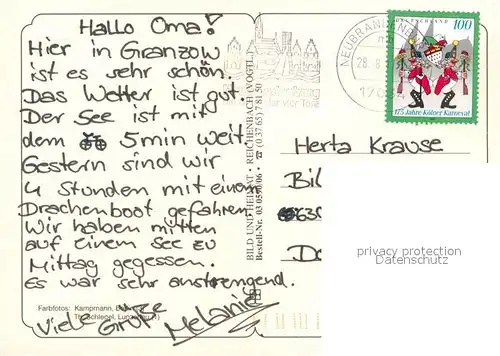 Hallo Oma!
Hier in Granzow
ist es sehr schön.
Das Wetter ist gut.
Der See ist mit
dem 5 min weit.
Gestern sind wir
4 Stunden mit einem
Drachenboot gefahren
Wir haben mitten
auf einem See zu
Mittag gegessen.
Es war sehr anstrengend.
Viele Grüße
Melanie
Farbfotos: Kampmann,
Schlegel,
BILD UND HEIMAT · REICHENBACH (VOGTL
Bestell-Nr. 03 0590/06 · ☎ (0 37 65) 7 81 50
der vier Tore
NEUBRANDEN
DEUTSCHLAND
100
175 Jahre Kölner Karneval
Herta Krause
Bil
630
D
privacy protection
Datenschutz